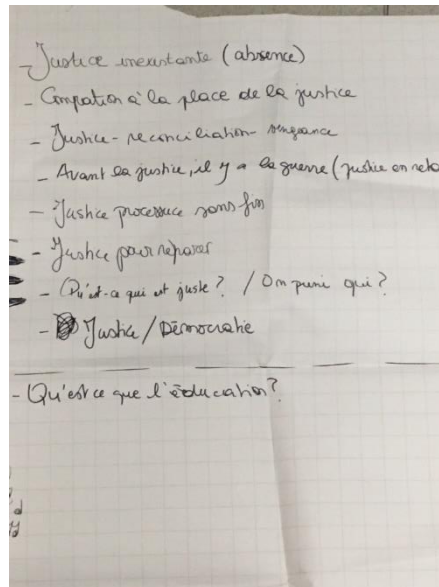 - Justice inexistante (absence)
- Compation à la place de la justice
- Justice - reconciliation - vengeance
- Avant la justice, il y a la guerre (justice en reta
- Justice processuce sans fin
- Justice pour réparer
- Qu'est-ce qui est juste ? / On puni qui ?
- Justice / Démocratie
- Qu'est ce que l'éducation ?
d
y